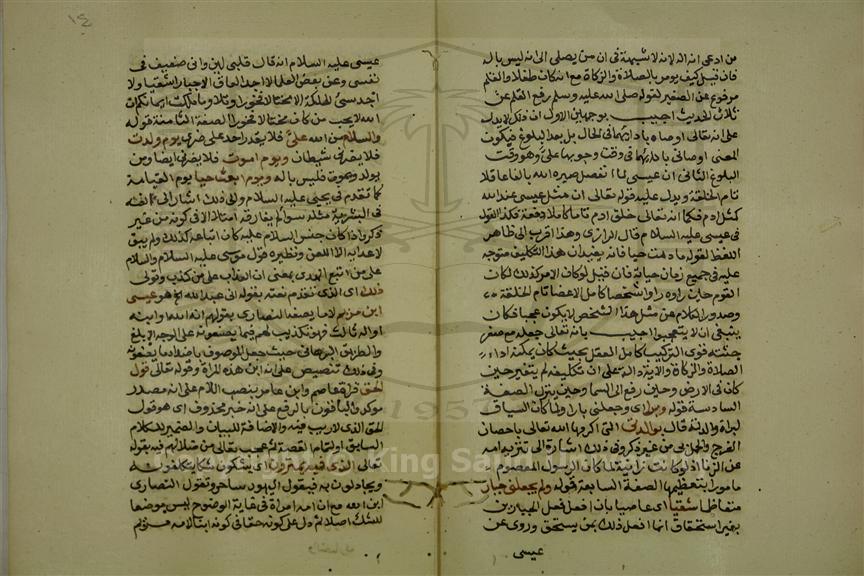 من ادعى انه اله لانه لا شبهة فى ان من يصلى الى انه ليس باله
فان قيل كيف يومر بالصلاة والزكاة مع انه كان طفلا والقلم
مرفوع عن الصغير لقوله صلى الله عليه وسلم رفع القلم عن
ثلاث الحديث اجيب بوجهين الاول ان ذلك لا يدل
على انه تعالى اوصاه بادائهما فى الحال بل بعد البلوغ فيكون
المعنى اوصانى بادائهما فى وقت وجوبهما على وهو وقت
البلوغ الثانى ان عيسى لما انفصل صيره الله بالغا عاقلا
تام الخلقة ويدل عليه قوله تعالى ان مثل عيسى عند الله
كمثل ادم فكما انه تعالى خلق ادم تاما كاملا دفعة فكذا القول
فى عيسى عليه السلام قال الرازى وهذا اقرب الى ظاهر
اللفظ لقوله ما دمت حيا فانه يفيد ان هذا التكليف متوجه
عليه فى جميع زمان حياته فان قيل لو كان الامر كذلك لكان
القوم حين راوه راوا شخصا كامل الاعضا تام الخلقة
وصدور الكلام عن مثل هذا الشخص لا يكون عجبا فكان
ينبغى ان لا يتعجبوا اجيب بانه تعالى جعله مع صغر
جثته قوى التركيب كامل العقل بحيث كان يمكنه اداء
الصلاة والزكاة والاية دالة على ان تكليفه لم يتغير حين
كان فى الارض وحين رفع الى السما وحين ينزل الصفة
السادسة قوله وبرا اى وجعلنى بارا ولما كان السياق
لبراة والدته قال بوالدتى التى اكرمها الله تعالى باحصان
الفرج والحمل بى من غير ذكر وفى ذلك اشارة الى تنزيه امه
عن الزنا اذ لو كانت زانية لما كان الرسول المعصوم
مامورا بتعظيمها الصفة السابعة قوله ولم يجعلنى جبارا
متعاظما شقيا اى عاصيا بان افعل فعل الجبارين
بغير استحقاق انما افعل ذلك بمن يستحق وروى عن
عيسى
١٤
عيسى عليه السلام انه قال قلبى لين وانى ضعيف فى
نفسى وعن بعض العلما لا تجد العاق الا جبارا شقيا ولا
تجد سئ الملكة الا مختالا فخورا وتلا وما ملكت ايمانكم ان
الله لا يحب من كان مختالا فخورا الصفة الثامنة قوله
والسلام من الله على فلا يقدر احد على ضرى يوم ولدت
فلا يضرنى شيطان ويوم اموت فلا يضرنى ايضا ومن
يولد ويموت فليس باله ويوم ابعث حيا يوم القيامة
كما تقدم فى يحيى عليه السلام وفى ذلك اشارة الى انه
فى البشرية مثله سوا لم يفارقه اصلا الا فى كونه من غير
ذكر واذا كان جنس السلام عليه كان اتباعه كذلك ولم يبق
لاعدائه الا اللعن ونظيره قول موسى عليه السلام والسلام
على من اتبع الهدى بمعنى ان العذاب على من كذب وتولى
ذلك اى الذى تقدم نعته بقوله انى عبد الله الخ هو عيسى
ابن مريم لا ما يصفه النصارى بقولهم انه الله او ابنه
او اله ثالث فهو تكذيب لهم فيما يصفونه على الوجه الابلغ
والطريق البرهانى حيث جعل الموصوف باضداد ما يصفونه
وفى ذلك تنصيص على انه ابن هذه المراة وقوله تعالى قول
الحق قراه عاصم وابن عامر بنصب اللام على انه مصدر
موكد والباقون بالرفع على انه خبر محذوف اى هو قول
الحق الذى لا ريب فيه والاضافة للبيان والضمير للكلام
السابق او لتمام القصة ثم عجب تعالى من ضلالهم فيه بقوله
تعالى الذى فيه يمترون اى يشكون شكا يتكلفونه
ويجادلون به فيقول اليهود ساحر وتقول النصارى
ابن الله مع ان امه امراة فى غاية الوضوح ليس موضعا
للشك اصلا ثم دل على كونه حقا فى كونه ابنا لامه مريم
1957
King Sa